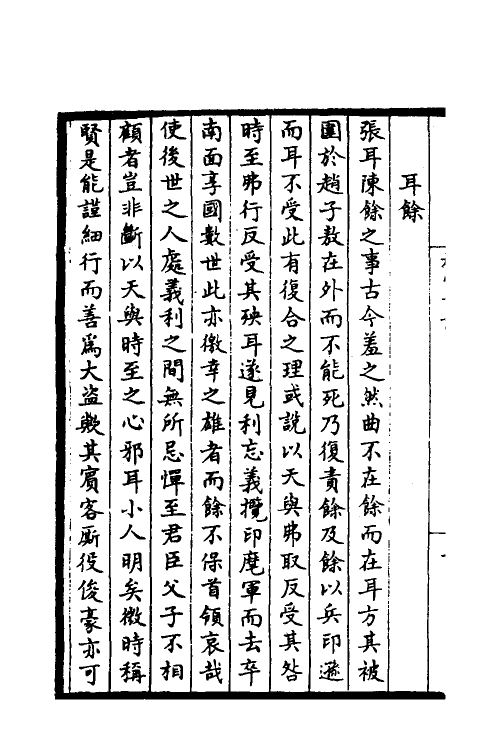 耳餘
張耳陳餘之事古今羞之然曲不在餘而在耳方其被
圍於趙子敖在外而不能死乃復責餘及餘以兵印遜
而耳不受此有復合之理或說以天與弗取反受其咎
時至弗行反受其殃耳遂見利忘義攬印麾軍而去卒
南面享國數世此亦徼幸之雄者而餘不保首領哀哉
使後世之人處義利之間無所忌憚至君臣父子不相
顧者豈非斷以天與時至之心邪耳小人明矣微時稱
賢是能謹細行而善爲大盜歟其賓客厮役俊豪亦可